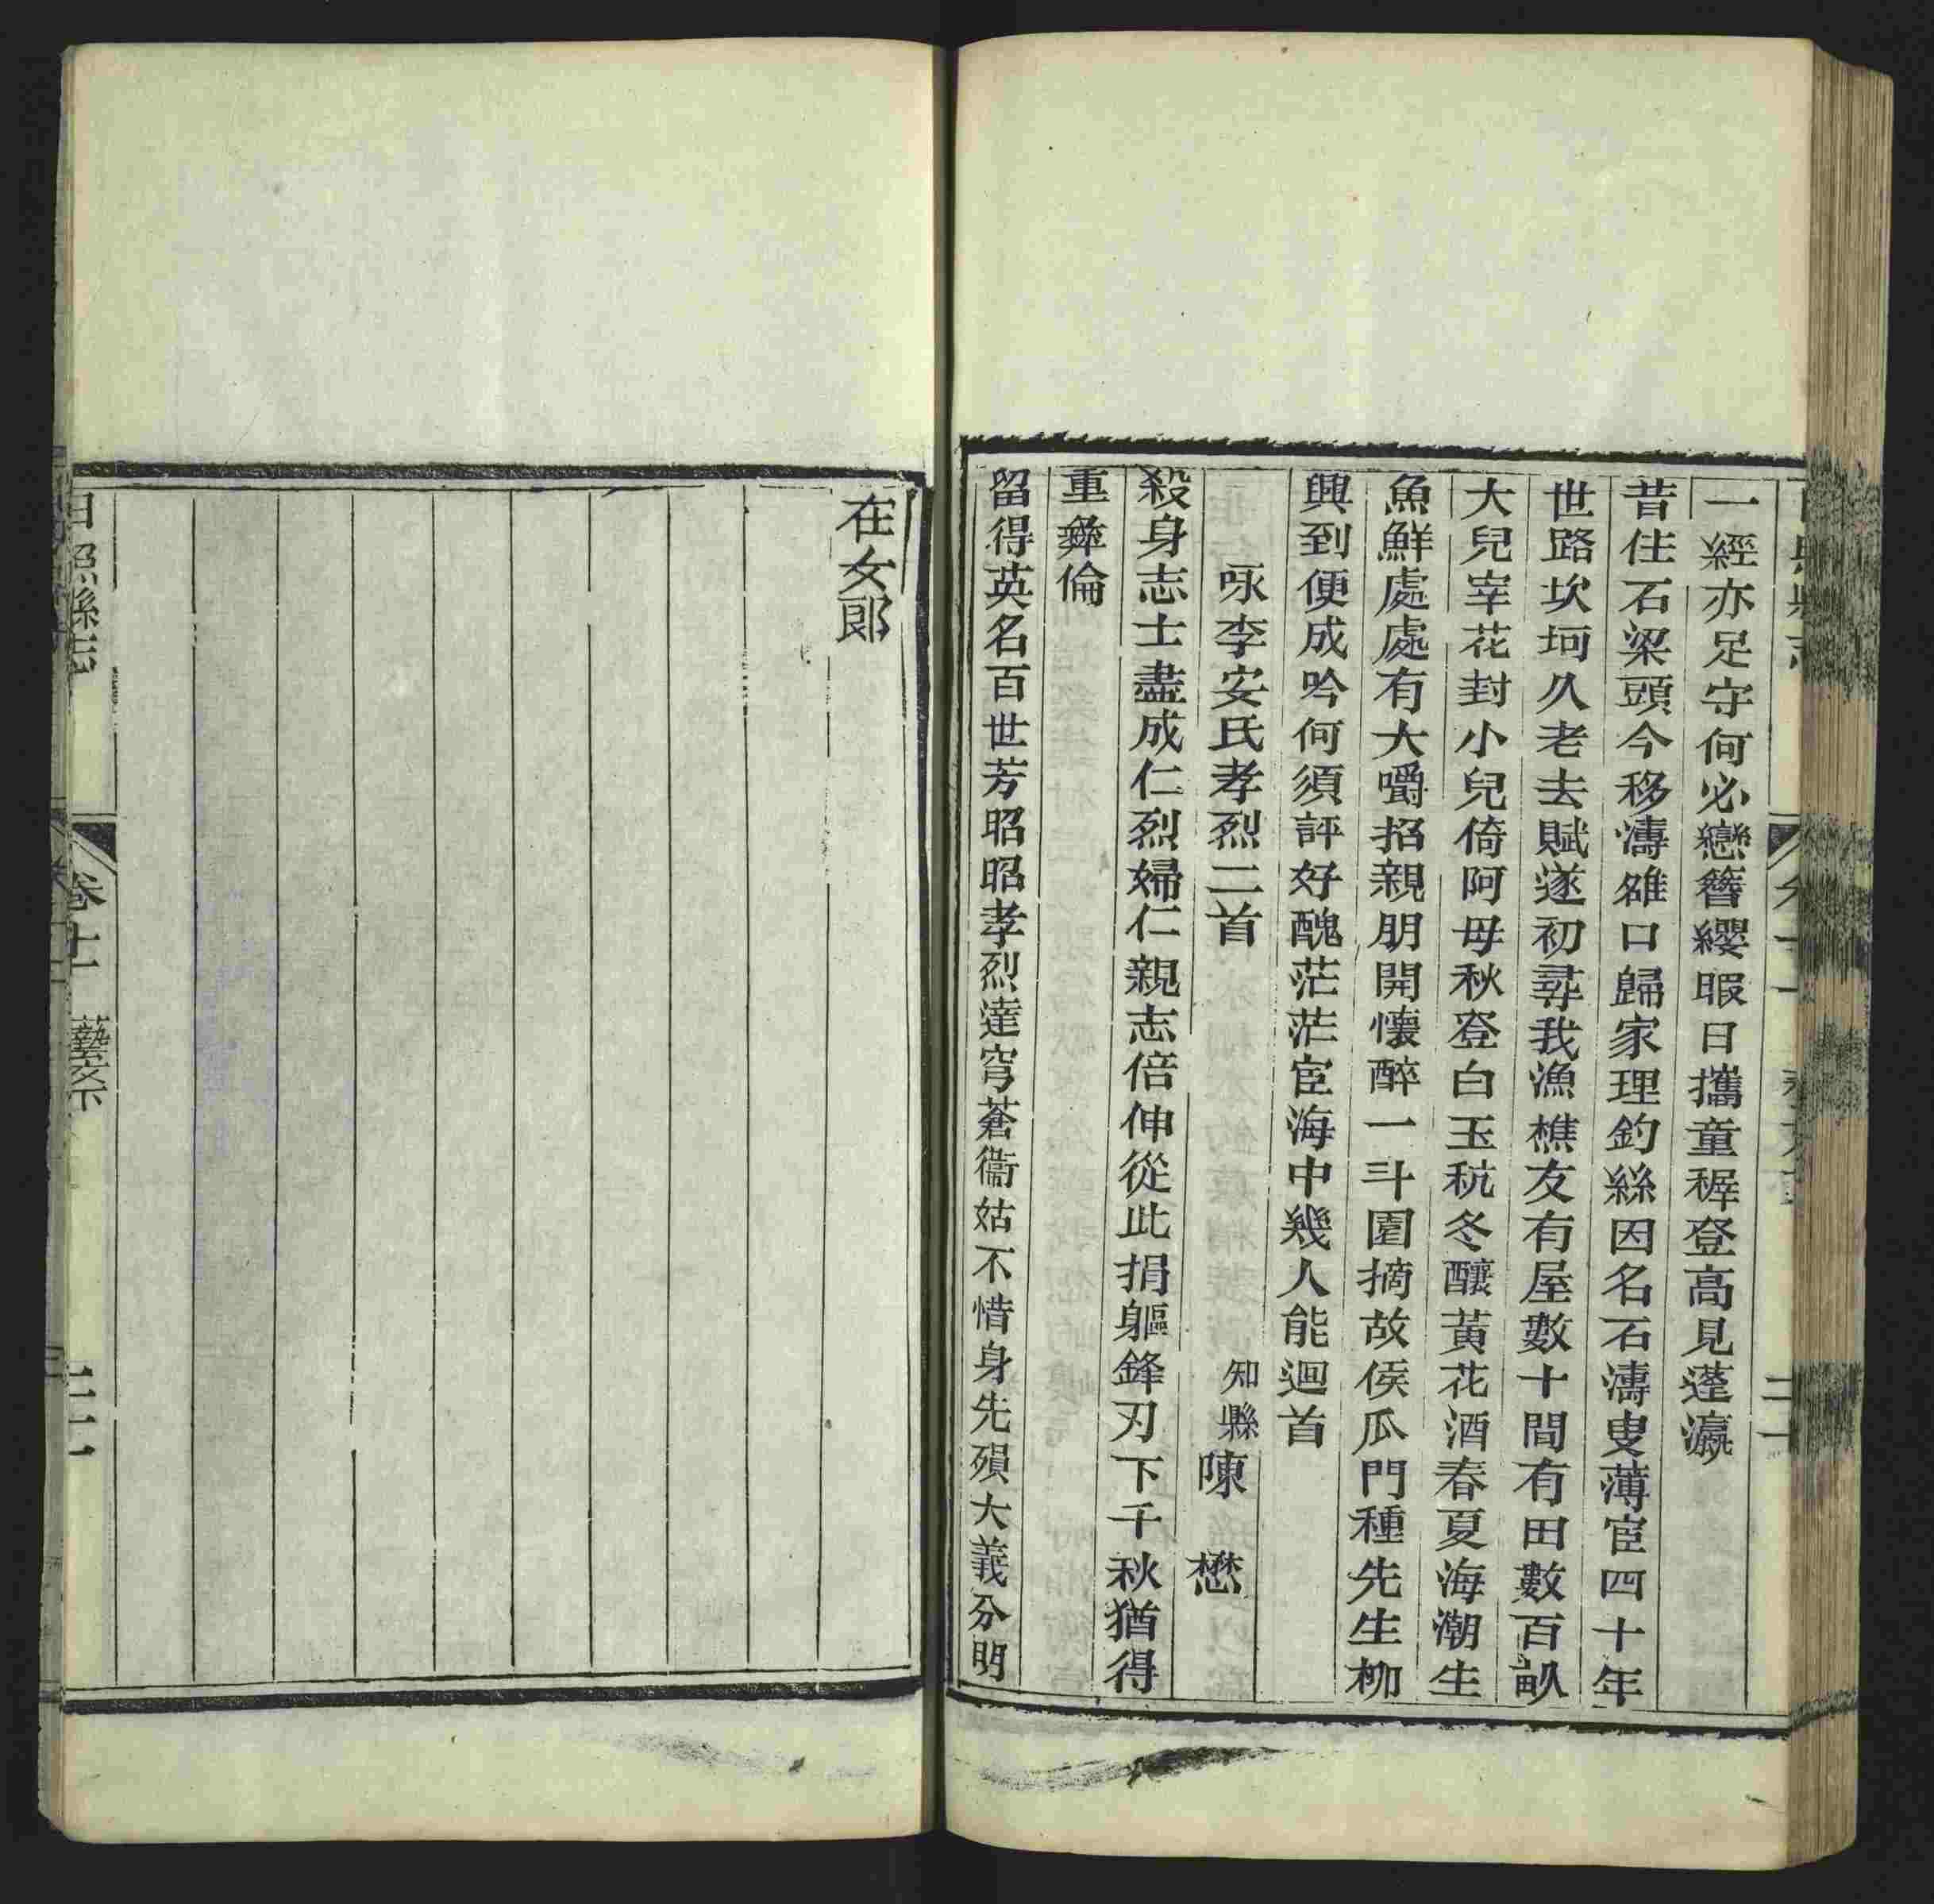 一經亦足守何必戀簪纓暇日攜童穉登高見蓬瀛
昔住石梁頭今移濤雒口歸家理釣絲因名石濤叟薄宦四十年
世路坎坷久老去賦遂初尋我漁樵友有屋數十間有田數百畝
大兒宰花封小兒倚阿母秋登白玉秔冬釀黃花酒春夏海潮生
魚鮮處處有大嚼招親朋開懷醉一斗園摘故侯瓜門種先生柳
興到便成吟何須評好醜茫茫宦海中幾人能迴首
咏李安氏孝烈二首 知縣陳 懋
殺身志士盡成仁烈婦仁親志倍伸從此捐軀鋒刃下千秋猶得
重彝倫
留得英名百世芳昭昭孝烈達穹蒼衞姑不惜身先殞大義分明
在女郎
日照縣志 卷十一 藝文下 二十二